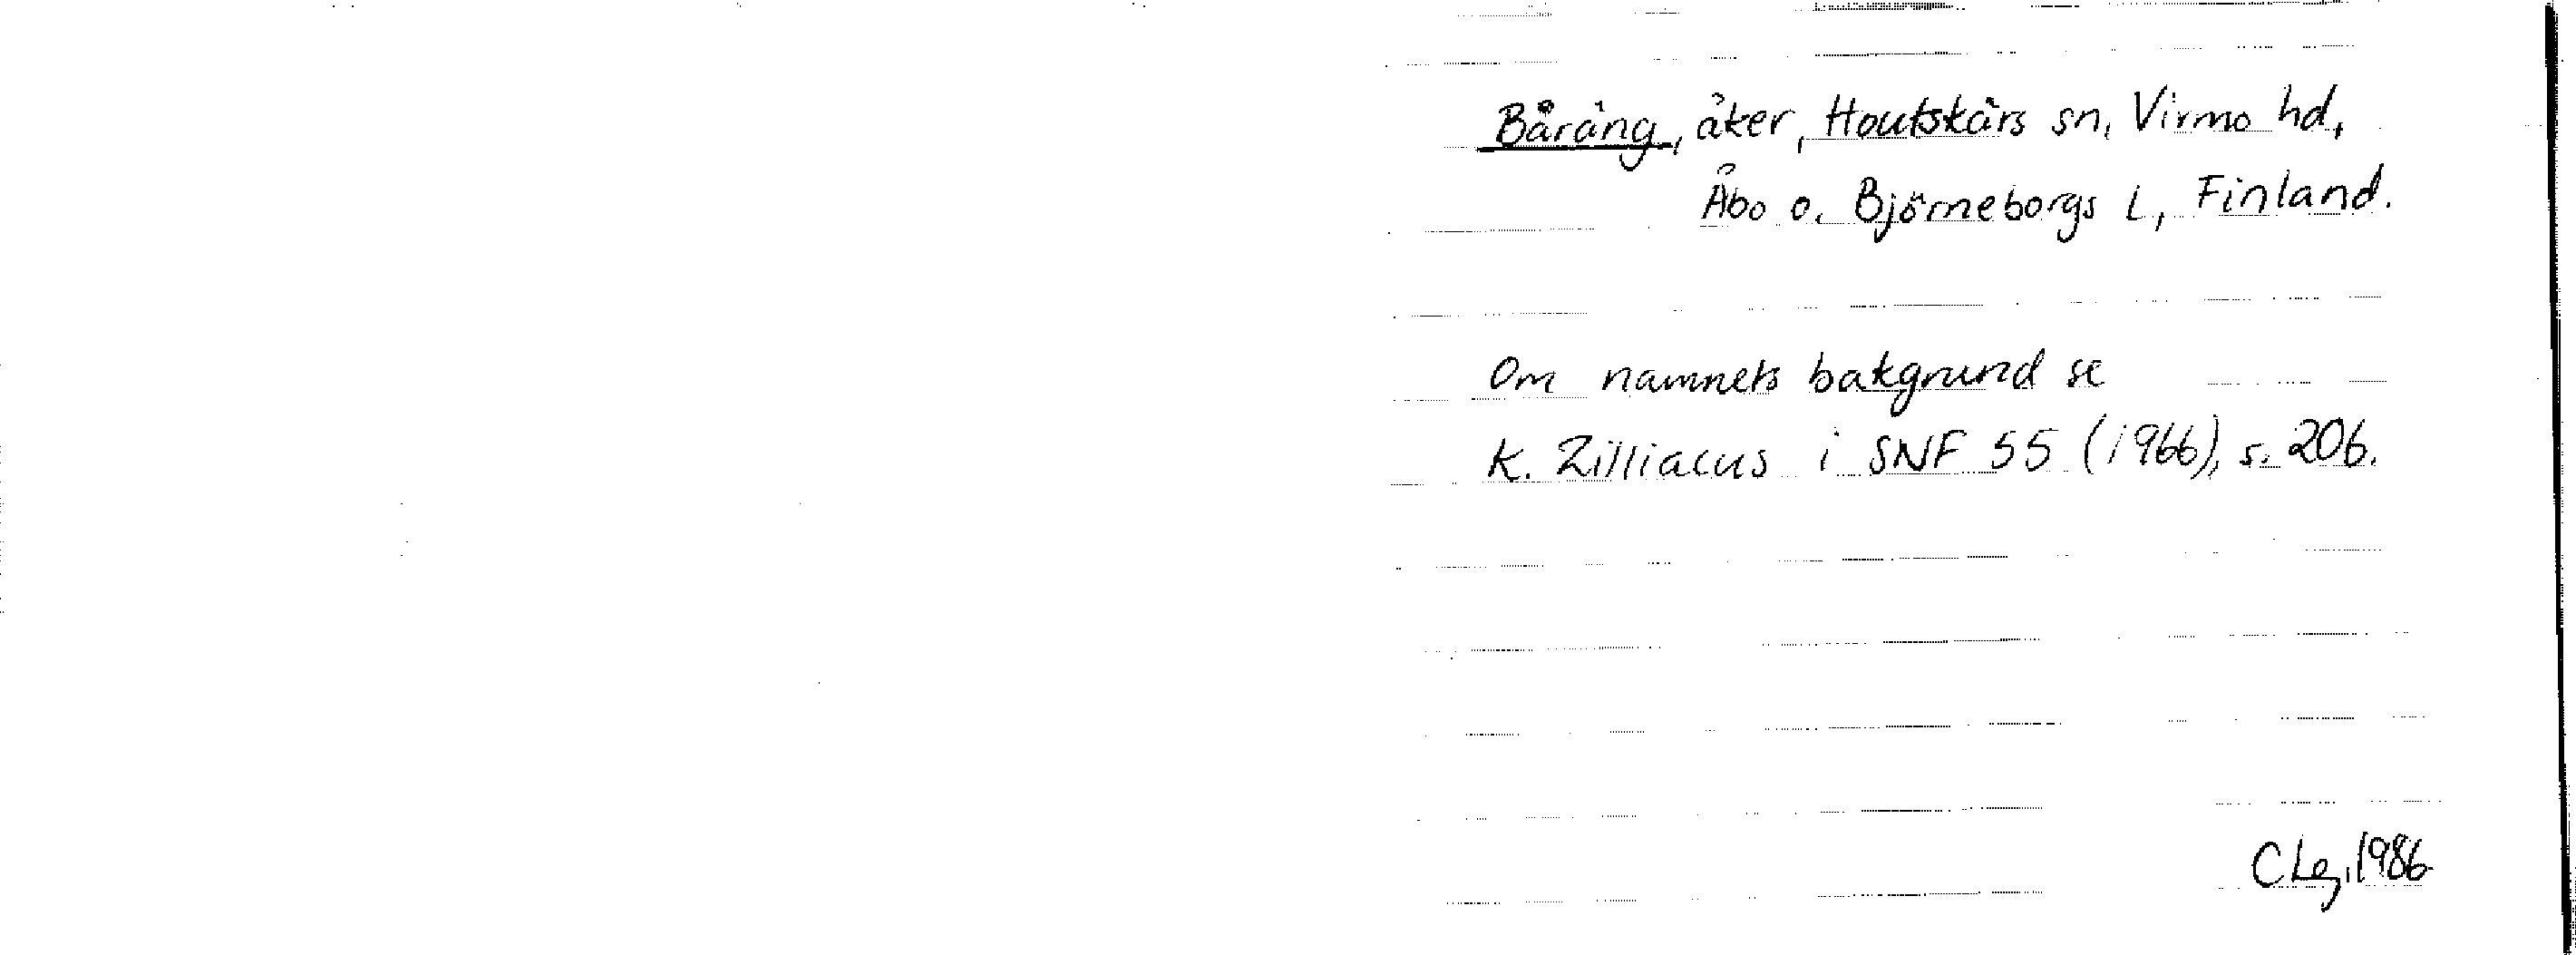 Båräng, åker, Houtskärs sn, Virmo hd,
Åbo o. Björneborgs L, Finland.
Om namnets bakgrund se
K. Zilliacus i SNF 55 (1966), s. 206.
CLg, 1986